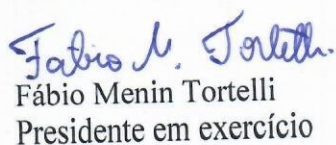 Fabio M. Tortelli.
Fábio Menin Tortelli
Presidente em exercício